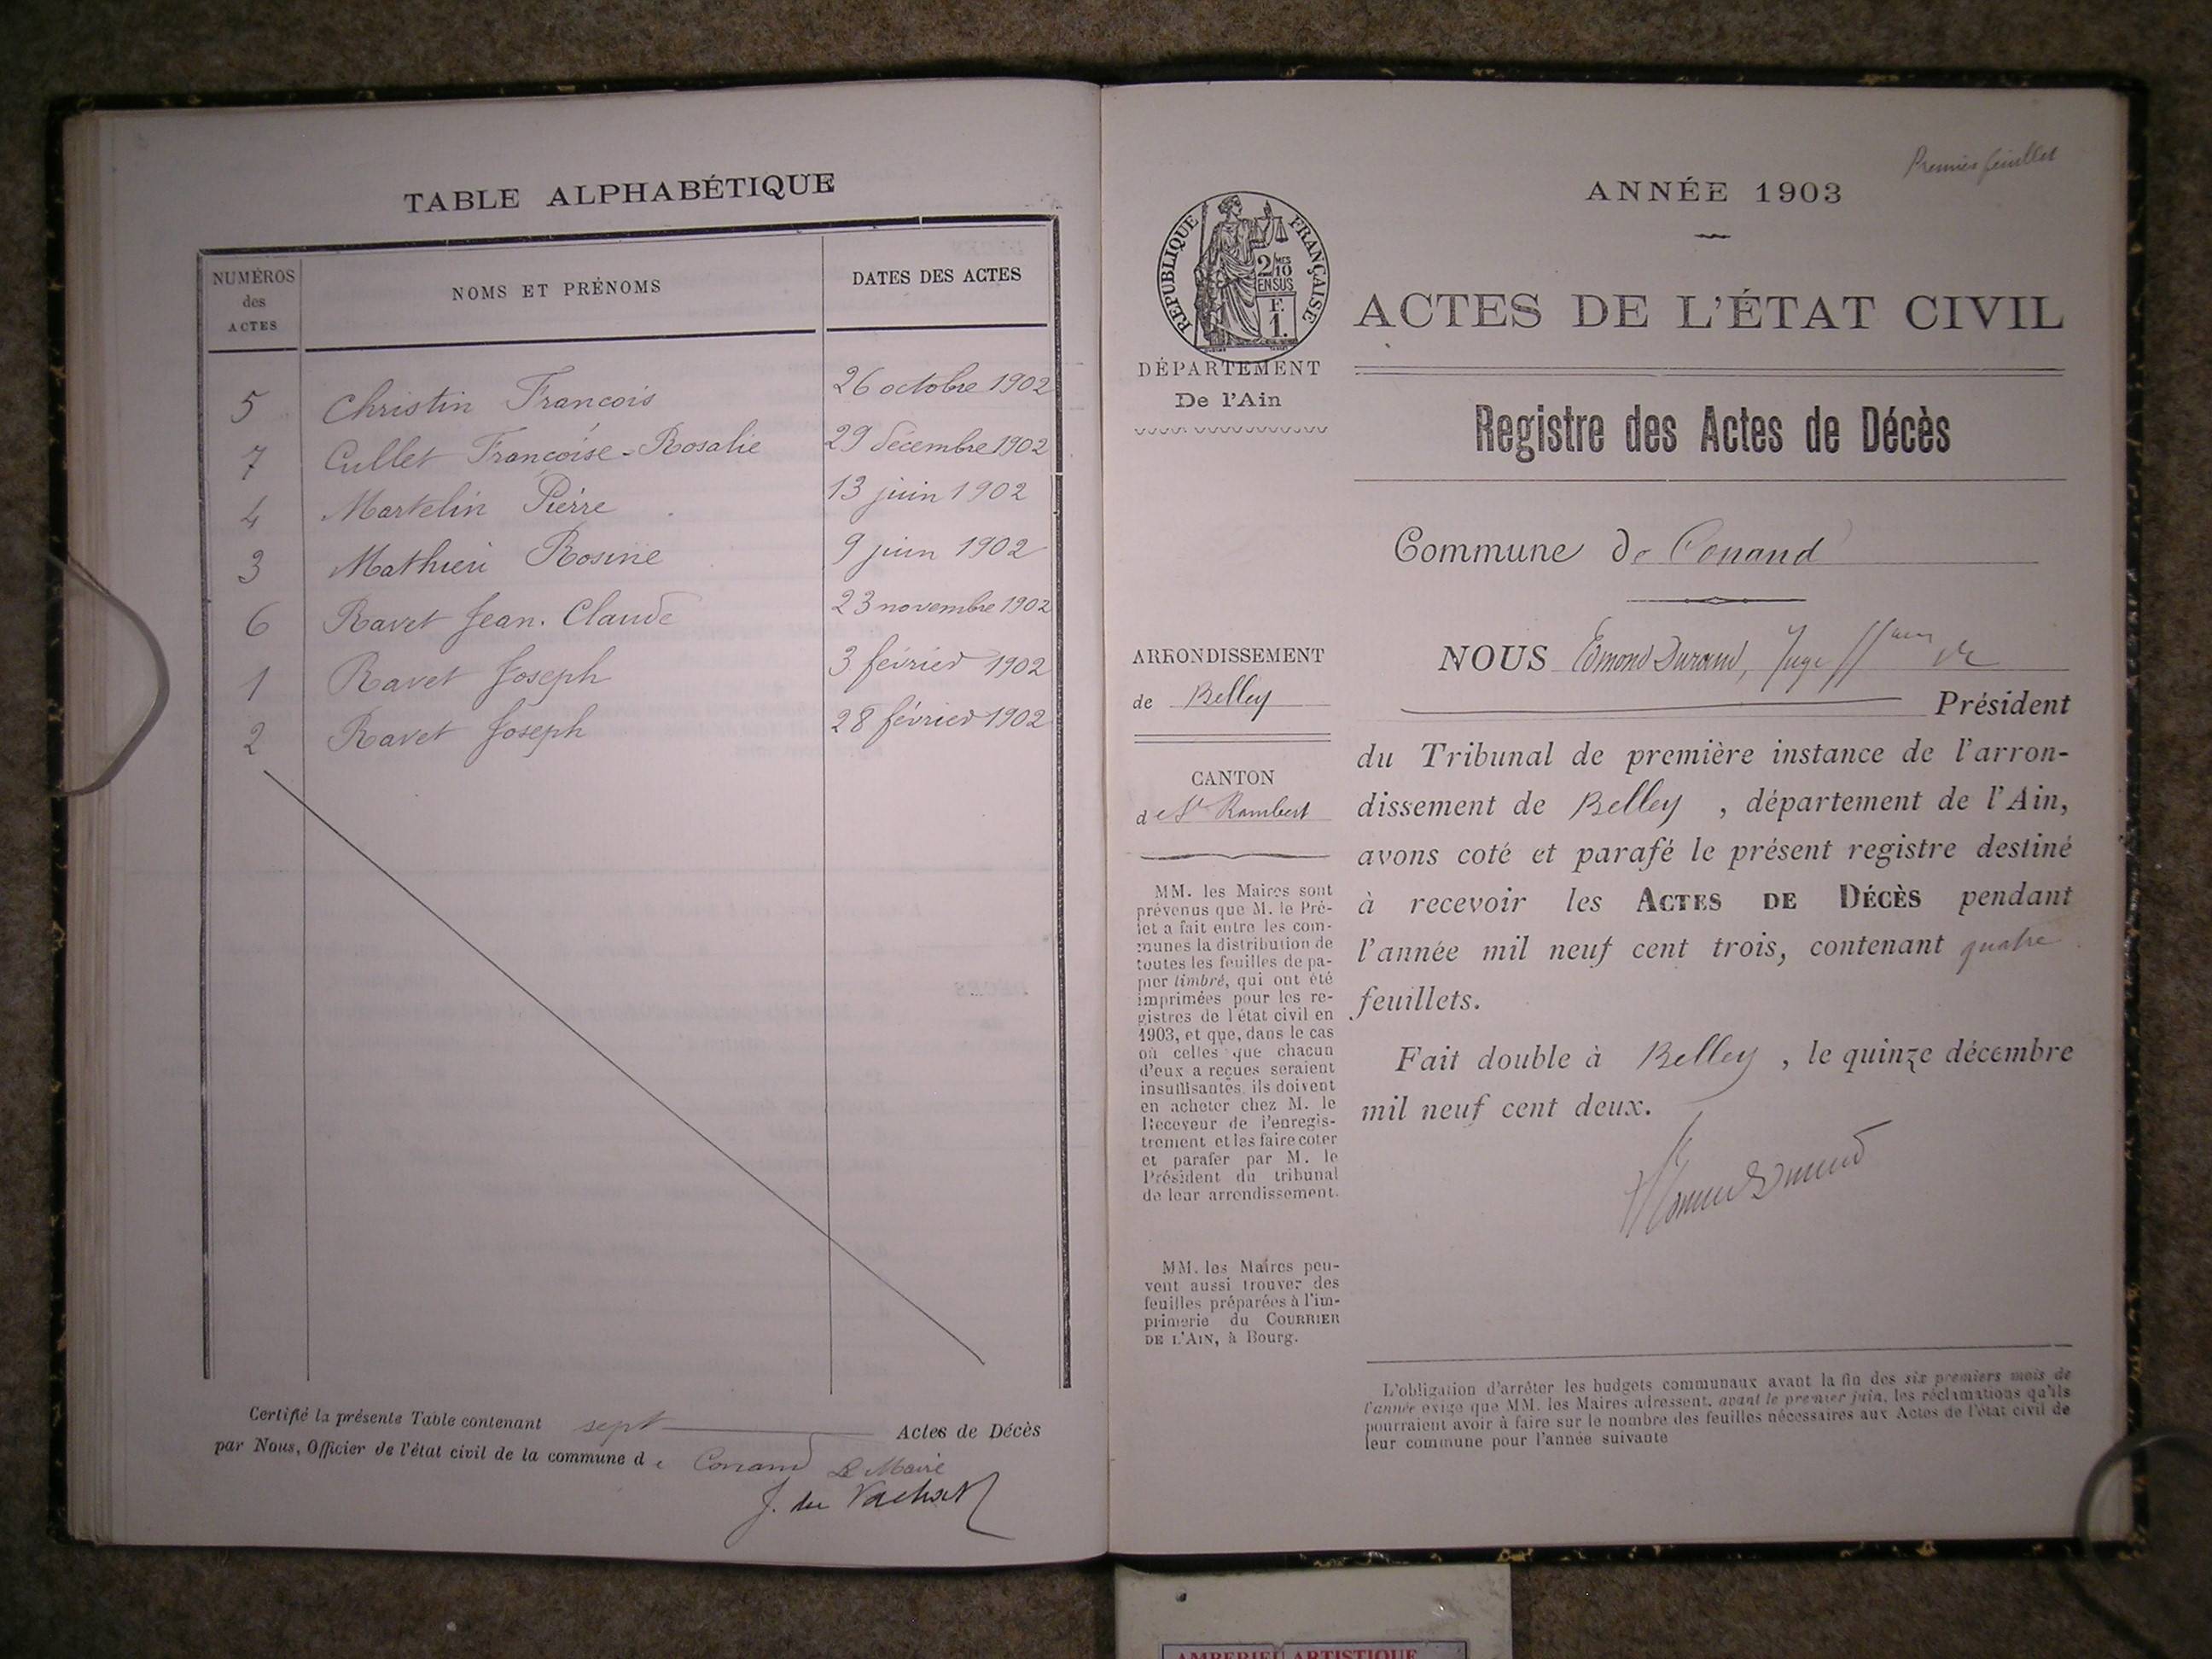 TABLE ALPHABÉTIQUE
NUMÉROS
des
ACTES
NOMS ET PRÉNOMS
DATES DES ACTES
5 Christin François 26 octobre 1902
7 Cullet Françoise-Rosalie 29 décembre 1902
4 Martelin Pierre 13 juin 1902
3 Mathieu Rosine 9 juin 1902
6 Ravet Jean-Claude 23 novembre 1902
1 Ravet Joseph 3 février 1902
2 Ravet Joseph 28 février 1902
Certifié la présente Table contenant sept Actes de Décès
par Nous, Officier de l'état civil de la commune de Conand Le Maire
Premier feuillet
ANNÉE 1903
RÉPUBLIQUE FRANÇAISE
2/10
MES
EN SUS
F.
1.
ACTES DE L'ÉTAT CIVIL
DÉPARTEMENT
De l'Ain
Registre des Actes de Décès
Commune de Conand
ARRONDISSEMENT
de Belley
CANTON
de St Rambert
MM. les Maires sont
prévenus que M. le Pré-
fet a fait entre les com-
munes la distribution de
toutes les feuilles de pa-
pier timbré, qui ont été
imprimées pour les re-
gistres de l'état civil en
1903, et que, dans le cas
où celles que chacun
d'eux a reçues seraient
insuffisantes, ils doivent
en acheter chez M. le
Receveur de l'enregis-
trement et les faire coter
et parafer par M. le
Président du tribunal
de leur arrondissement.
MM. les Maires peu-
vent aussi trouver des
feuilles préparées à l'im-
primerie du COURRIER
DE L'AIN, à Bourg.
NOUS Edmond Durand, Juge de
Président
du Tribunal de première instance de l'arron-
dissement de Belley, département de l'Ain,
avons coté et parafé le présent registre destiné
à recevoir les ACTES DE DÉCÈS pendant
l'année mil neuf cent trois, contenant quatre
feuillets.
Fait double à Belley, le quinze décembre
mil neuf cent deux.
L'obligation d'arrêter les budgets communaux avant la fin des six premiers mois de
l'année exige que MM. les Maires adressent, avant le premier juin, les réclamations qu'ils
pourraient avoir à faire sur le nombre des feuilles nécessaires aux Actes de l'état civil de
leur commune pour l'année suivante
AMBERIEU ARTISTIQUE